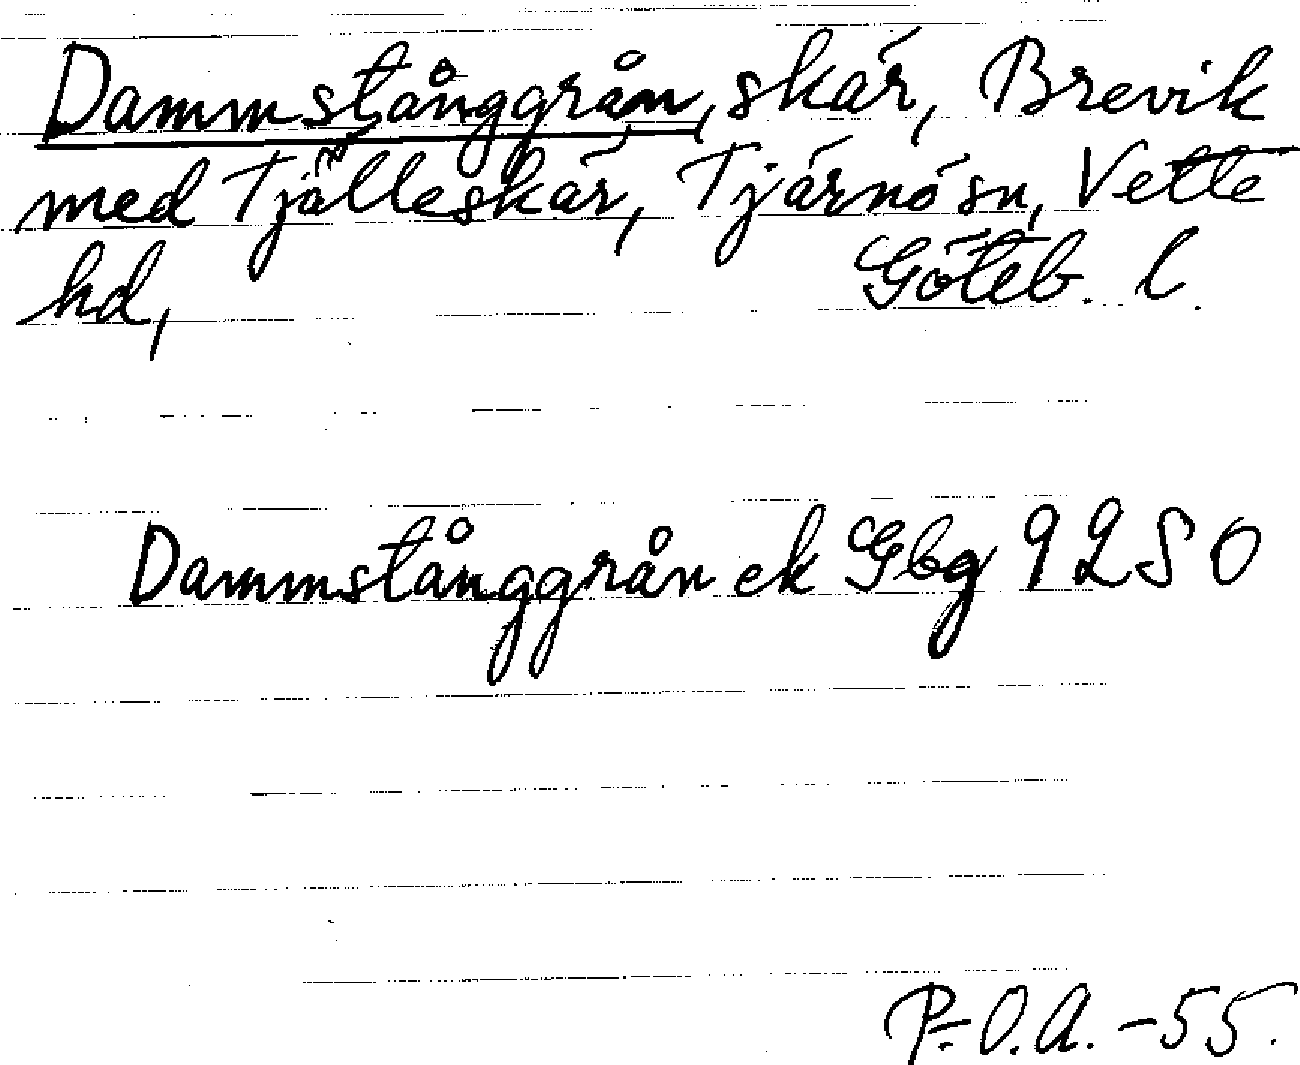 Dammstånggrån, skär, Brevik
med Tjälleskär, Tjärnö sn, Vette
hd, Göteb. l.
Dammstånggrån ek Gbg 9280
P.-O.A. -55.